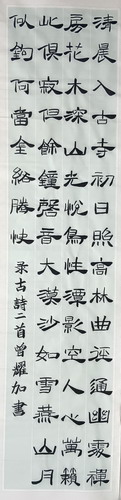 清晨入古寺初日照高林曲徑通幽處禪
房花木深山光悅鳥性潭影空人心萬籟
此俱寂但餘鐘磬音大漠沙如雪燕山月
似鉤何當金絡腦快
录古詩二首曾耀加書